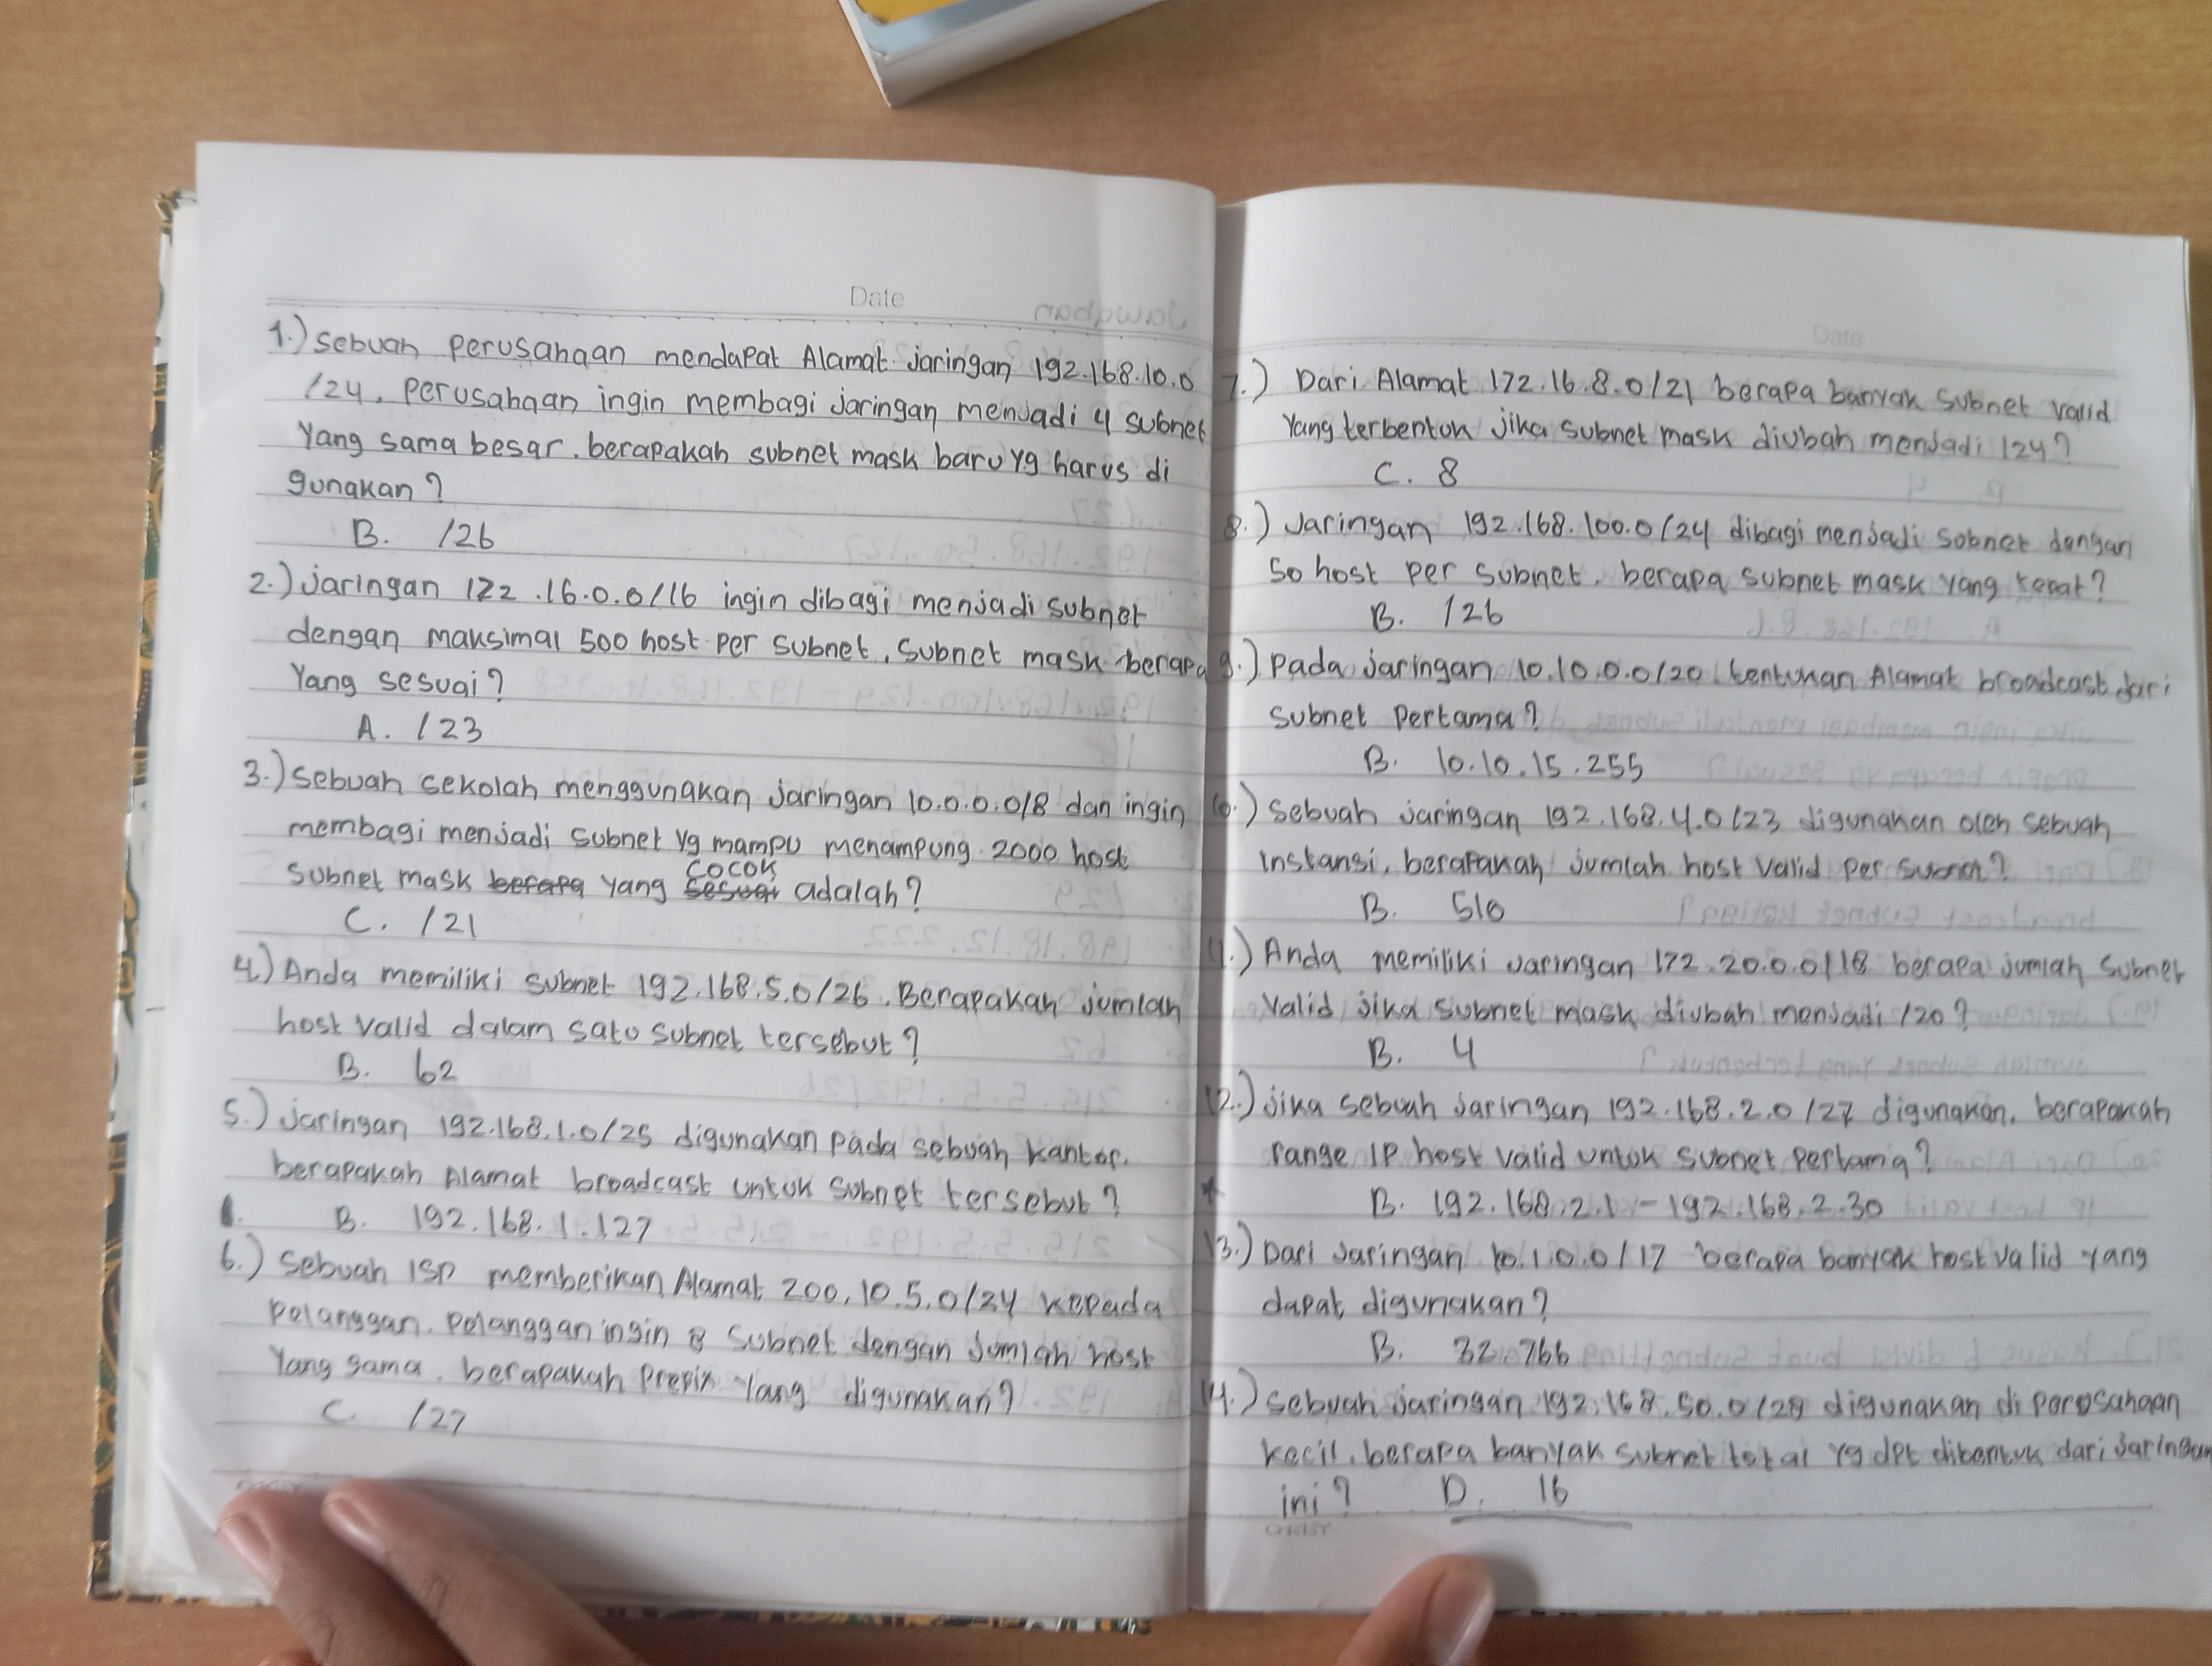 Date
1.) Sebuah perusahaan mendapat Alamat jaringan 192.168.10.0
/24. perusahaan ingin membagi jaringan menjadi 4 subnet
Yang sama besar. berapakah subnet mask baru yg harus di
gunakan?
B. /26
2.) jaringan 172.16.0.0/16 ingin dibagi menjadi subnet
dengan maksimal 500 host per subnet, subnet mask berapa
Yang sesuai?
A. /23
3.) Sebuah sekolah menggunakan jaringan 10.0.0.0/8 dan ingin
membagi menjadi subnet yg mampu menampung 2000 host
cocok
subnet mask berapa yang sesuai adalah?
C. /21
4.) Anda memiliki subnet 192.168.5.0/26. Berapakah jumlah
host valid dalam satu subnet tersebut?
B. 62
5.) jaringan 192.168.1.0/25 digunakan pada sebuah kantor.
berapakah Alamat broadcast untuk subnet tersebut?
B. 192.168.1.127
6.) Sebuah ISP memberikan Alamat 200.10.5.0/24 kepada
pelanggan. pelanggan ingin 8 subnet dengan jumlah host
Yang sama. berapakah prepix yang digunakan?
C. /27
Date
7.) Dari Alamat 172.16.8.0/21 berapa banyak subnet valid
Yang terbentuk jika subnet mask diubah menjadi /24?
C. 8
8.) Jaringan 192.168.100.0/24 dibagi menjadi subnet dengan
50 host per subnet. berapa subnet mask yang tepat?
B. /26
9.) Pada jaringan 10.10.0.0/20 tentukan Alamat broadcast dari
subnet pertama?
B. 10.10.15.255
10.) Sebuah jaringan 192.168.4.0/23 digunakan oleh sebuah
instansi, berapakah jumlah host valid per subnet?
B. 510
11.) Anda memiliki jaringan 172.20.0.0/18 berapa jumlah subnet
valid jika subnet mask diubah menjadi /20?
B. 4
12.) jika sebuah jaringan 192.168.2.0/27 digunakan, berapakah
range IP host valid untuk subnet pertama?
B. 192.168.2.1 - 192.168.2.30
13.) Dari jaringan 10.1.0.0/17 berapa banyak host valid yang
dapat digunakan?
B. 32.766
14.) Sebuah jaringan 192.168.50.0/28 digunakan di perusahaan
kecil. berapa banyak subnet total yg dpt dibentuk dari jaringan
ini? D. 16